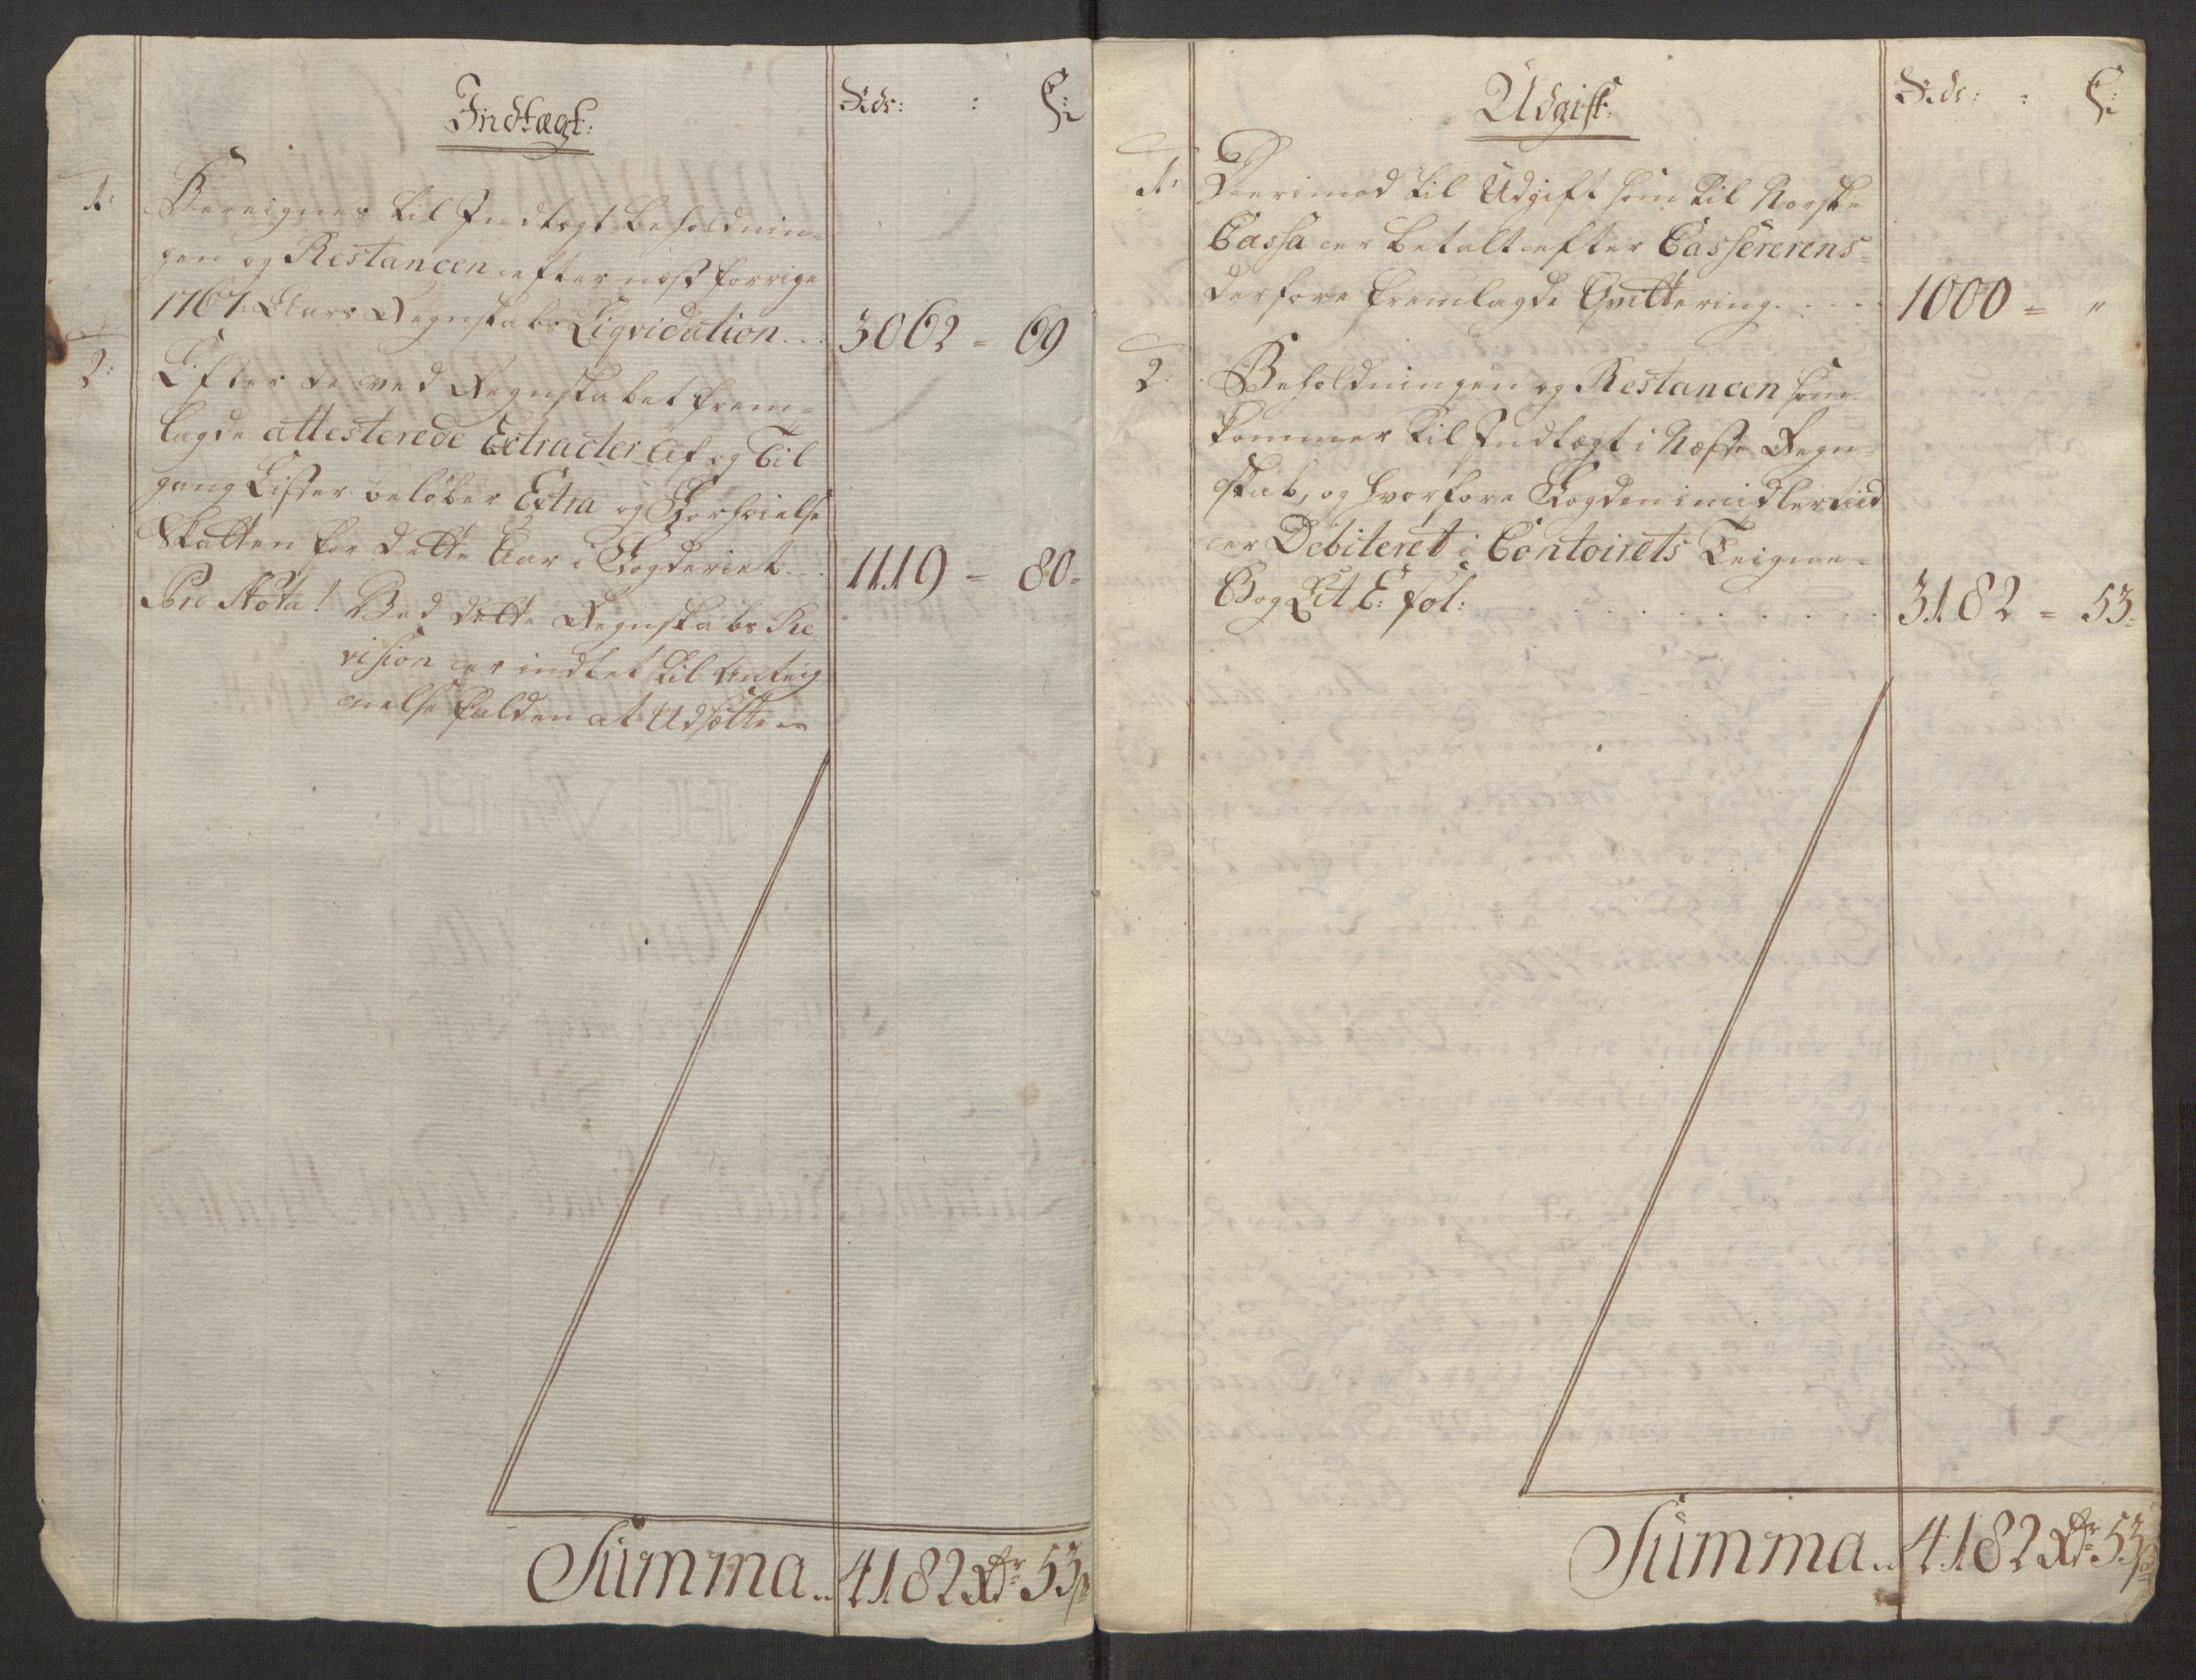 Indtægt:
Rdr: : ſ:
1: Bereignes til Indtægt beholdnin=
gen og Restancen efter næst forrige
1767. Aars Regnskabs Liqvidation... 3062 = 69
2: Efter de ved Regnskabet frem=
lagde attesterede Extracter af og Til
gang Lister beløber Extra og Forhøielse
Skatten for dette Aar i Fogderiet... 1119 = 80=
Pro Nota! Ved dette Regnskabs Re
vision er indtet til Anteig
nelse falden at Udsætte
Summa.. 4182 Rdr 53 ſ
Udgift:
Rdr: : ſ:
1: Derimod til Udgift som til Norske
Cassa er betalt efter Cassererens
derfore fremlagde Qvittering..... 1000 = "
2: Beholdningen og Restancen som
kommer til Indtægt i Næste Regn=
skab, og hvorfore Fogden imidlertiid
er Debiteret i Contoirets Teigne=
Bog Lit E: fol: . . . . . . . . 3182 = 53=
Summa.. 4182 Rdr 53 ſ